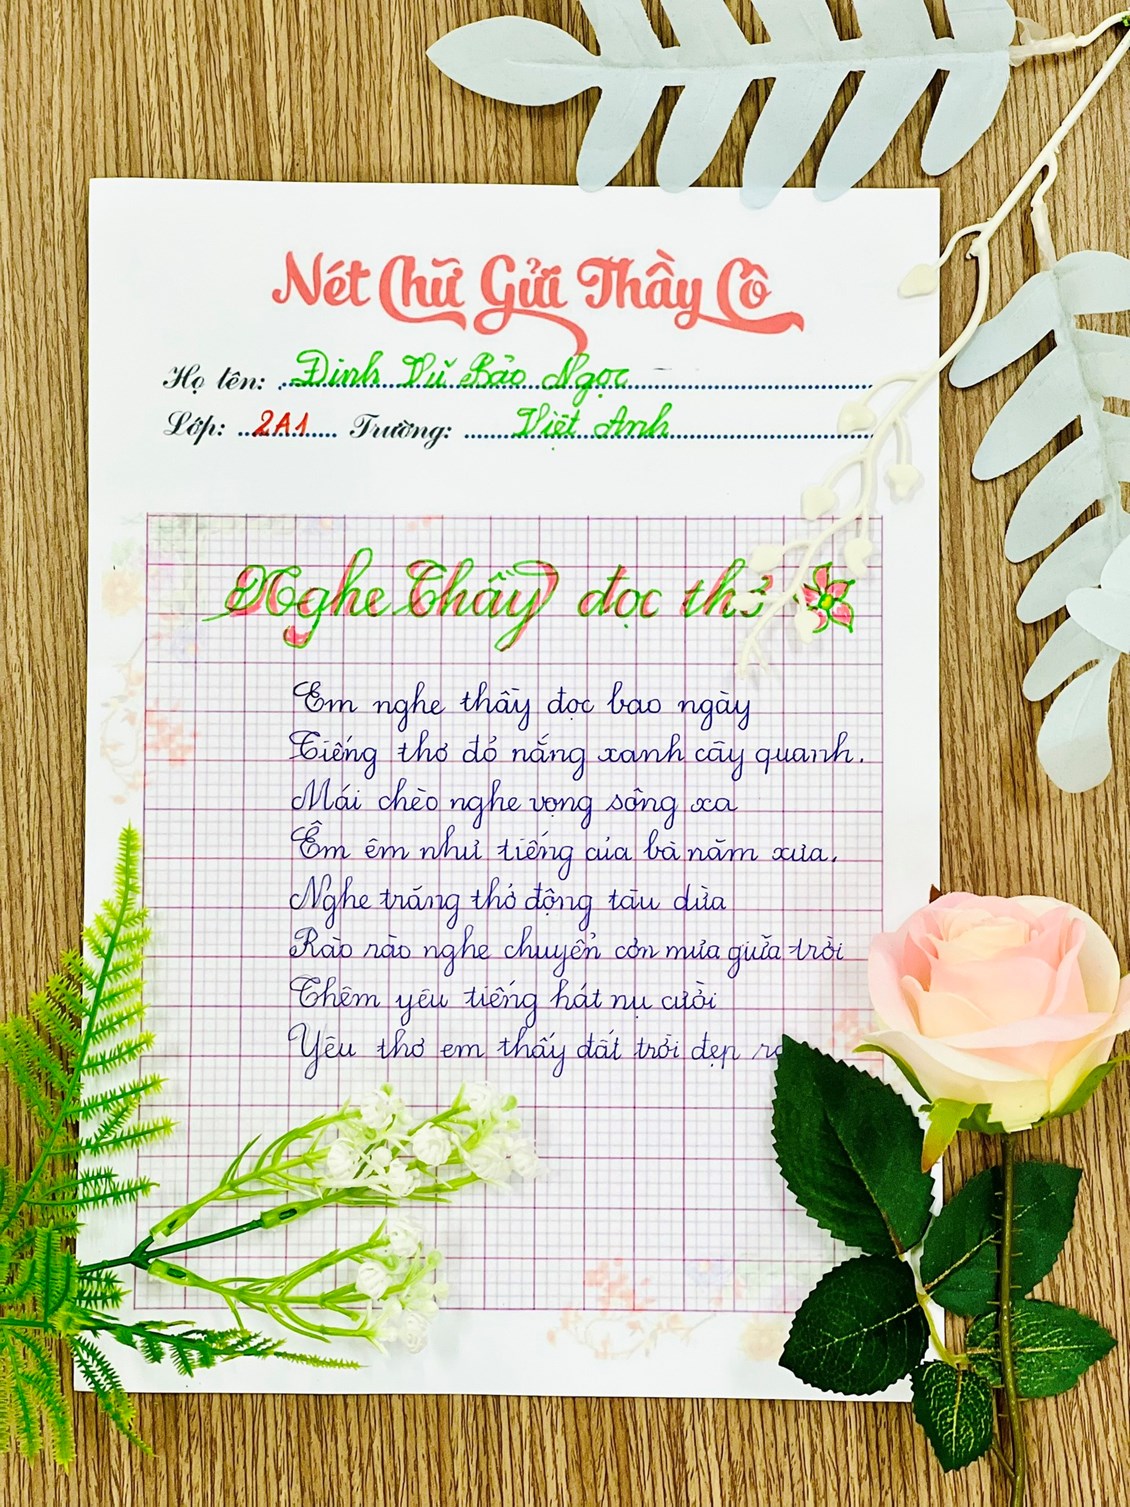 Nét Chữ Gửi Thầy Cô
Họ tên: Đinh Vũ Bảo Ngọc
Lớp: 2A1 Trường: Việt Anh
Nghe Thầy đọc thơ
Em nghe thầy đọc bao ngày
Tiếng thơ đỏ nắng xanh cây quanh.
Mái chèo nghe vọng sông xa
Êm êm như tiếng của bà năm xưa.
Nghe trăng thở động tàu dừa
Rào rào nghe chuyển cơn mưa giữa trời
Thêm yêu tiếng hát nụ cười
Yêu thơ em thấy đất trời đẹp